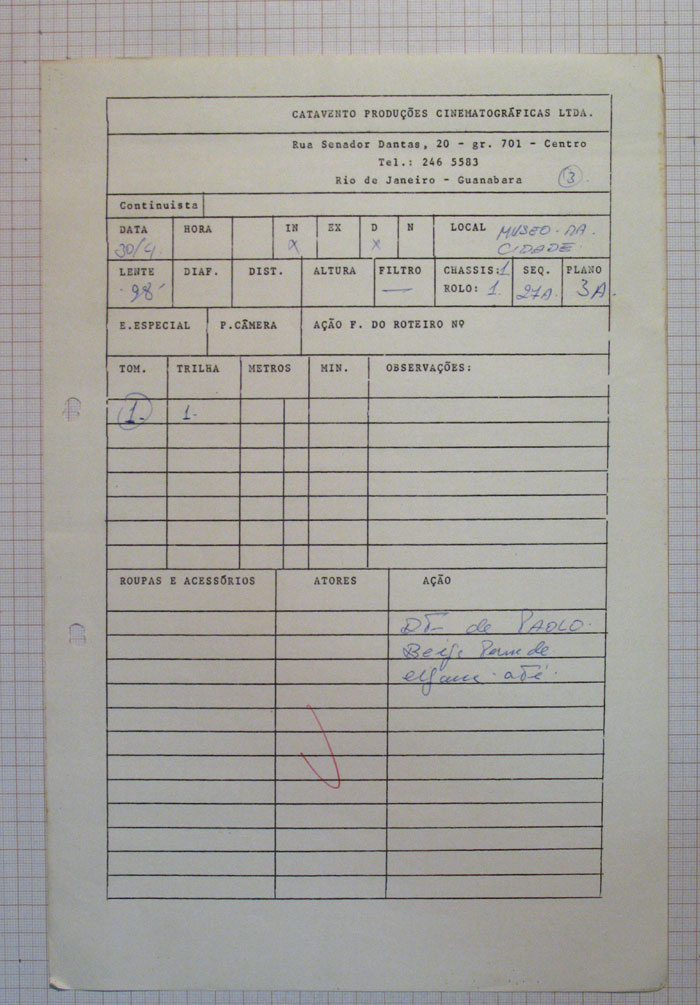 CATAVENTO PRODUÇÕES CINEMATOGRÁFICAS LTDA.
Rua Senador Dantas, 20 - gr. 701 - Centro
Tel.: 246 5583
Rio de Janeiro - Guanabara 3
Continuista
DATA HORA IN EX D N LOCAL MUSEO DA
30/4 x x CIDADE
LENTE DIAF. DIST. ALTURA FILTRO CHASSIS: 1 SEQ. PLANO
98 — ROLO: 1. 27A. 3A.
E.ESPECIAL P.CÂMERA AÇÃO F. DO ROTEIRO Nº
TOM. TRILHA METROS MIN. OBSERVAÇÕES:
1. 1.
ROUPAS E ACESSÓRIOS ATORES AÇÃO
de PAOLO.
até.